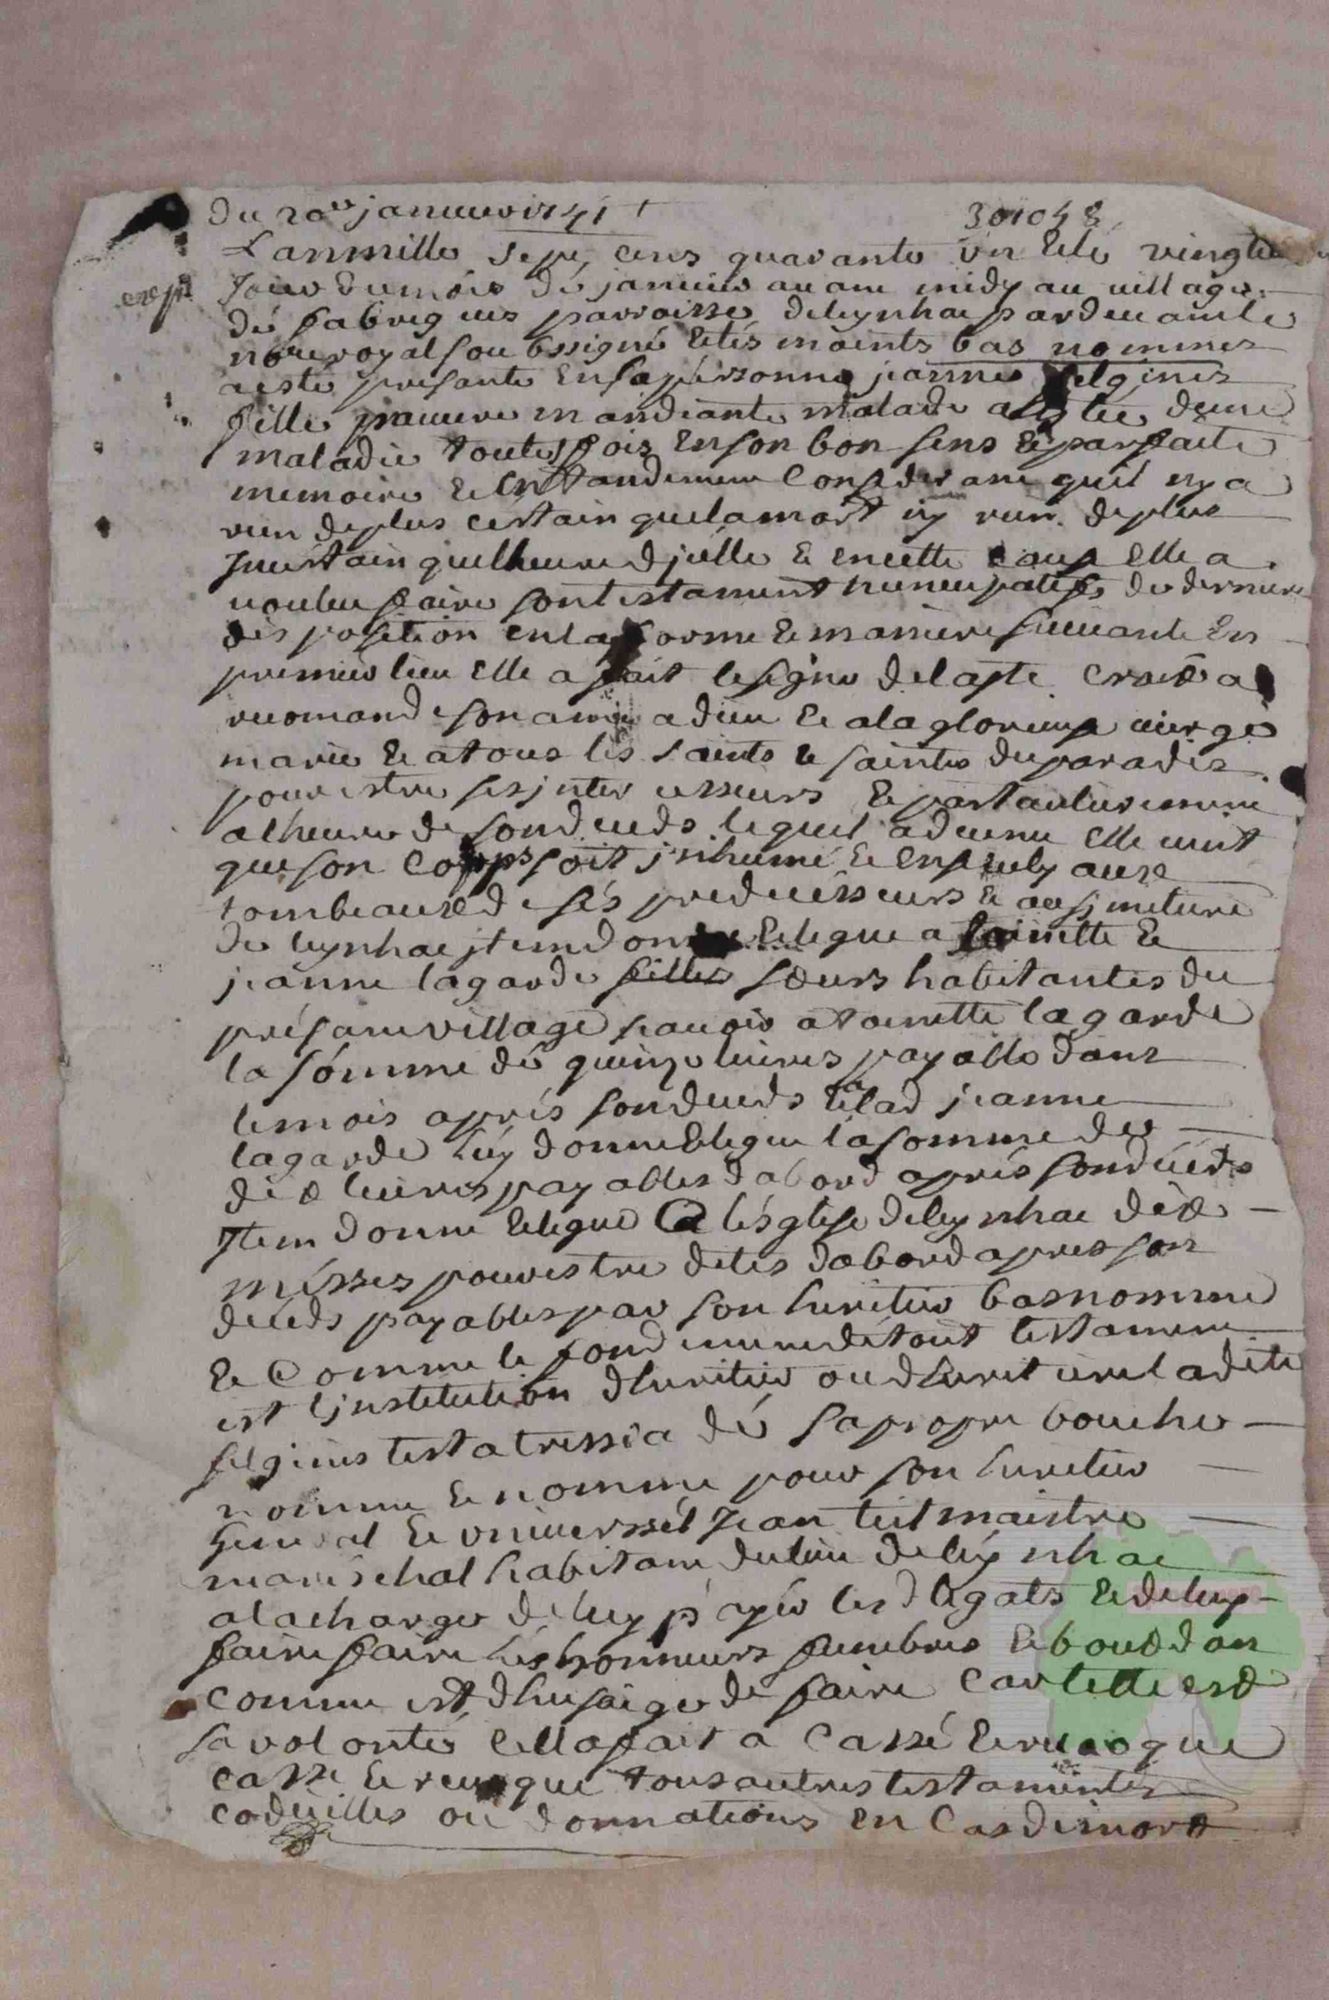 du 20e janvier 1741
301048
L'an mille sept cens quarante un et le vingtie
exp
Jour du mois dé janvier avant midy au village
dé fabregues parroisse deleynhac pardevant le
nore royal soubssigné et tés moints bas nommes
a esté presante en sa personne jeanne felgines
fille pauvre mandiante malade alitée dune
maladie toutesfois en son bon sens et parfaite
memoire et entandement considerant quil ny a
rien deplus certain quelamort ny rien deplus
Jncertain quelheure djcelle et encette cause elle a
voulu faire son testament nuncupatif de derniere
disposition en la forme et maniere suivante en
premier lieu elle a fait le signe de la ste croix a
recomandé son ame a dieu et ala glorieuse vierge
marie et atous les saints et saintes duparadis
pour estre ses jnter cesseurs et particulierement
alheure de son deceds lequel advenu elle veut
que son corps soit jnhumé et ensevely aux
tombeaux de sés predecesseurs et au simetiere
de leynhac jtem donne et legue a toinette et
jeanne lagarde filles soeurs habitantes du
présant village scavoir a toinette lagarde
la sómme dé quinze livres payable dans
le mois aprés son deceds et a lad jeanne
lagarde luy donne et legue la somme de
dix livres payables dabord aprés son décéds
Jtem donne et legue a l'ésglise deleynhac dix
mésses pour estre dites dabord apres son
deceds payables par son heritier bas nommé
et comme le fondement détout testament
est l'jnstitution dheritier ou dheritiere ladite
felgines testatresse a dé sa propre bouche
nommé et nomme pour son heritier
general et universsél Jean teil maistre
mareschal habitant du lieu deleynhac
ala charge deluy páyér les d legats et deluy
faire faire les honneurs funebres et bout dan
comme est dhusaige de faire car telle est
sa volonté et ella fait a cassé et revoqué
casse et revoque tous autres testaments
codicilles ou donnations en cas de mort